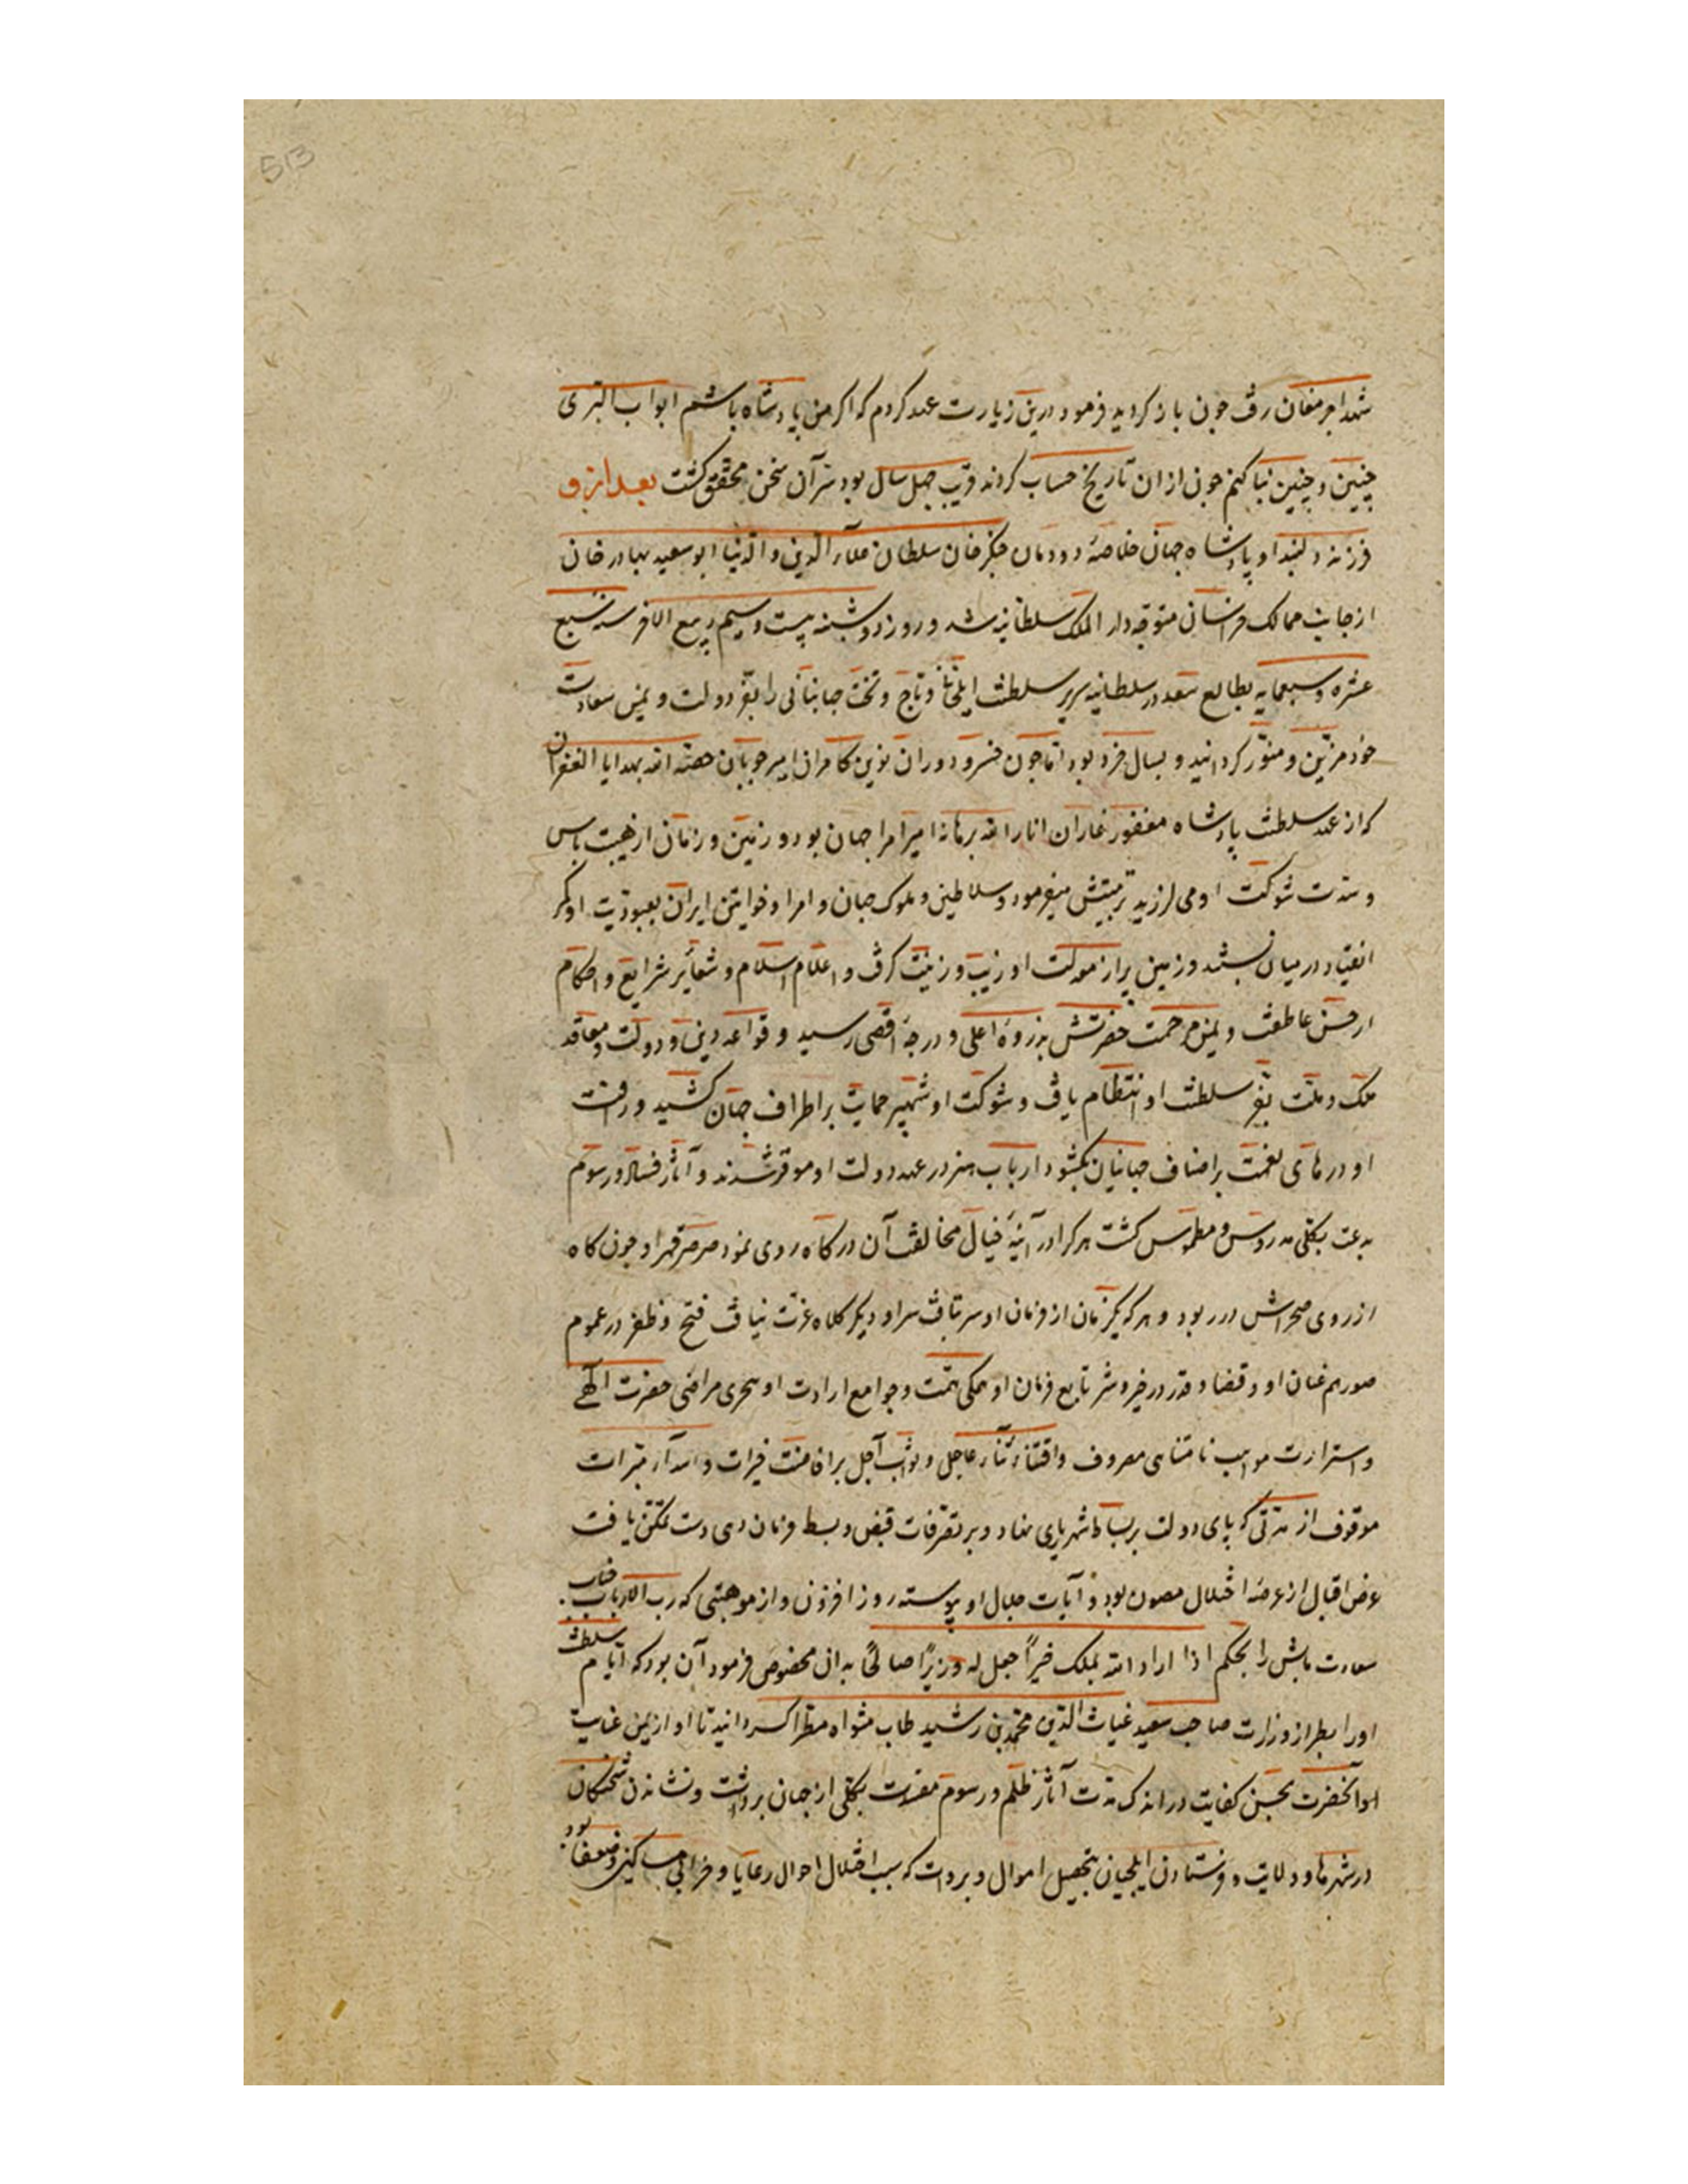 513
شهدا بر مغان رفت جون باز کردید فرمود درین زیارت عهد کردم که اکر من پادشاه باشم ابواب البری
چنین و چنین بنا کنم جون از ان تاریخ حساب کردند قریب جهل سال بود سر آن سخن محقق کشت بعد از و
فرزند دلبند او پادشاه جهان خلاصهٔ دودمان جنکزخان سلطان علآء الدین و الدنیا ابو سعید بهادر خان
از جانب ممالک خراسان متوجه دار الملک سلطانیه شد و روز دوشنبه بیست و سیم ربیع الاخر سنه سبع
عشره و سبعمایه بطالع سعد در سلطانیه سریر سلطنت ایلخانی و تاج و تخت جهانبانی را بفر دولت و یمن سعادت
خود مزین و منور کردانید و بسال خرد بود اما جون خسرو دوران نوین کامران امیر جوبان حصه الله بهدایا الغفران
که از عهد سلطنت پادشاه مغفور غازان انار الله برهانه امیر امرا جهان بود و زمین و زمان از هیبت باس
و شدت شوکت او می لرزید تربیتش میفرمود و سلاطین و ملوک جهان و امرا و خواتین ایران بعبودیت او کمر
انقیاد در میان بستند و زمین یراز موکت او زیب و زینت کرفت و اعلام اسلام و شعایر شرایع و احکام
از حسن عاطفت و یمن مرحمت حضرتش بذروهٔ اعلی و درجهٔ اقصی رسید و قواعد دین و دولت و معاقد
ملک و ملت بفر سلطنت او انتظام یافت و شوکت او شهپر حمایت بر اطراف جهان کشید و رافت
او درهای نعمت بر اصناف جهانیان بکشود ارباب هنر در عهد دولت او موقر شدند و آثار فساد و رسوم
بدعت بکلی مدروس و مطموس کشت هر کرا در آینهٔ خیال مخالفت آن درکاه روی نمود صرصر قهر او جون کاه
از روی صحراش در ربود و هر که یکزمان از فرمان او سر تافت سر او دیکر کلاه عزت نیافت فتح و ظفر در عموم
صور هم عنان او و قضا و قدر در خیر و شر تابع فرمان او همکی همت و جوامع ارادت او بتحری مراضی حضرت الهی
و استزادت مواهب نامتناهی مصروف و اقتناء ثناء عاجل و ثواب آجل بر افاضت خیرات و اسدآء مبرات
موقوف از مدتی که پای دولت بر بساط شهریاری نهاد و بر تصرفات قبض و بسط فرمان دهی دست تمکن یافت
عرض اقبال از عرضهٔ اختلال مصون بود و آیات جلال او پیوسته روز افزون و از موهبتی که رب الارباب جناب
سعادت مابش را بحکم اذا اراد الله بملک خیراً جعل له وزیراً صالحاً بدان مخصوص فرمود آن بود که ایام سلطنت
او را بطراز وزارت صاحب سعید غیاث الدین محمد بن رشید طاب مثواه مطرز کردانید تا او از یمن عنایت
آنحضرت بحسن کفایت در اندک مدت آثار ظلم و رسوم مفسدت بکلی از جهان برداشت و نشاندن شحنکان
در شهرها و ولایت و فرستادن ایلجیان بتحصیل اموال و بروات که سبب اختلال احوال رعایا و خرابی مساکین و ضعفا بود